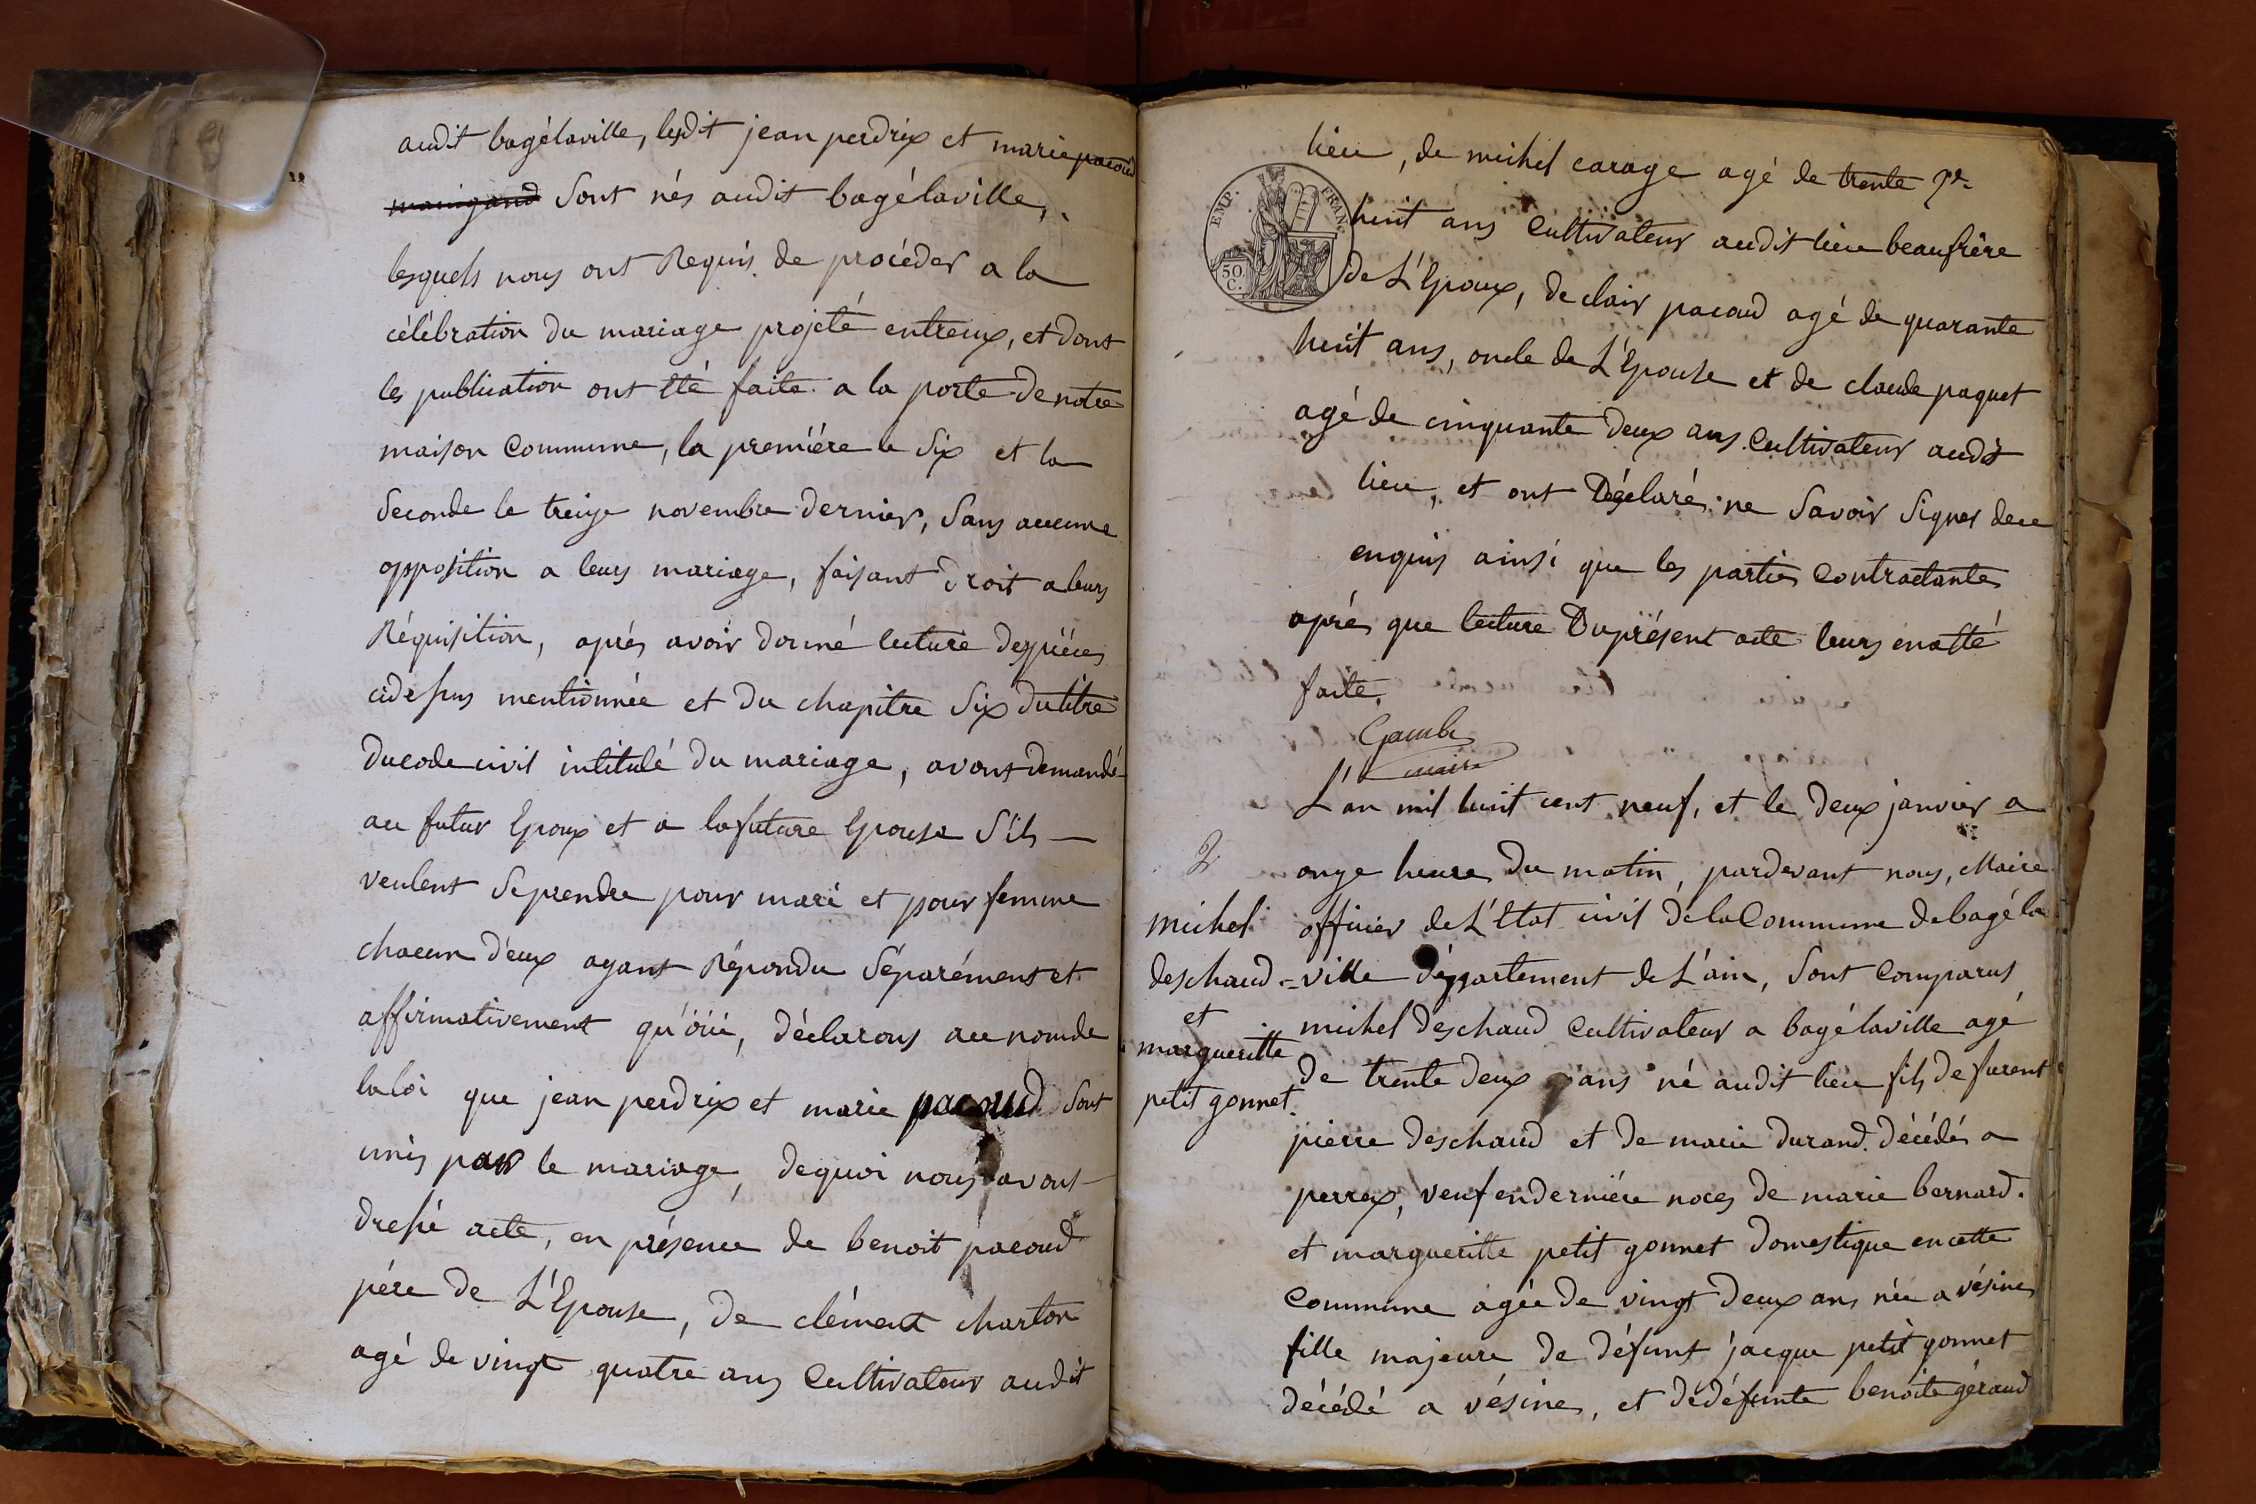 audit bagélaville, lesdit jean perdrix et marie pacoud
sont nés audit bagélaville,
lesquels nous ont Requis de procéder a la
célébration du mariage projeté entreux, et dont
les publication ont été faite a la porte de notre
maison Commune, la premiére le Six et la
Seconde le treize novembre dernier, Sans aucune
opposition a leurs mariage, faisant droit a leurs
Réquisition, aprés avoir donné lecture des piéces
cidessus mentionnée et du chapitre Six du titre
du code civil intitulé du mariage, avons demandé
au futur Epoux et a la future Epouse S'ils
veulent Se prendre pour mari et pour femme
chacun d'eux ayant Répondu Séparément et
affirmativement qu'öüi, déclarons au nom de
la loi que jean perdrix et marie pacoud Sont
unis par le mariage, dequoi nous avons
dressé acte, en présence de benoit pacoud
pére de L'Epouse, de clément charlon
agé de vingt quatre ans Cultivateur audit
lieu, de michel carage agé de trente
huit ans Cultivateur audit lieu beaufrère
de L'Epoux, de clair pacoud agé de quarante
huit ans, oncle de L'Epouse et de claude paquet
agé de cinquante deux ans Cultivateur audit
lieu, et ont Déclaré ne Savoir Signer de ce
enquis ainsi que les parties Contractantes
aprés que lecture Du présent acte leurs en a été
faite.
EMP. FRANC.
50.
C.
Gambe
maire
L'an mil huit cent neuf, et le deux janvier a
onze heure du matin, pardevant nous, Maire
officier de L'Etat civil de la Commune de bagé la
ville département de L'ain, Sont Comparus
michel deschaud Cultivateur a bagélaville agé
de trente deux ans né audit lieu fils de furent
pierre deschaud et de marie durand décédés a
perrex, veuf en derniére noces de marie bernard.
et margueritte petit gonnet domestique en cette
Commune agée de vingt deux ans née a vésines
fille majeure de défunt jacque petit gonnet
décédé a vésines, et de défunte benoite géraud
2
michel
deschaud
et
margueritte
petit gonnet.